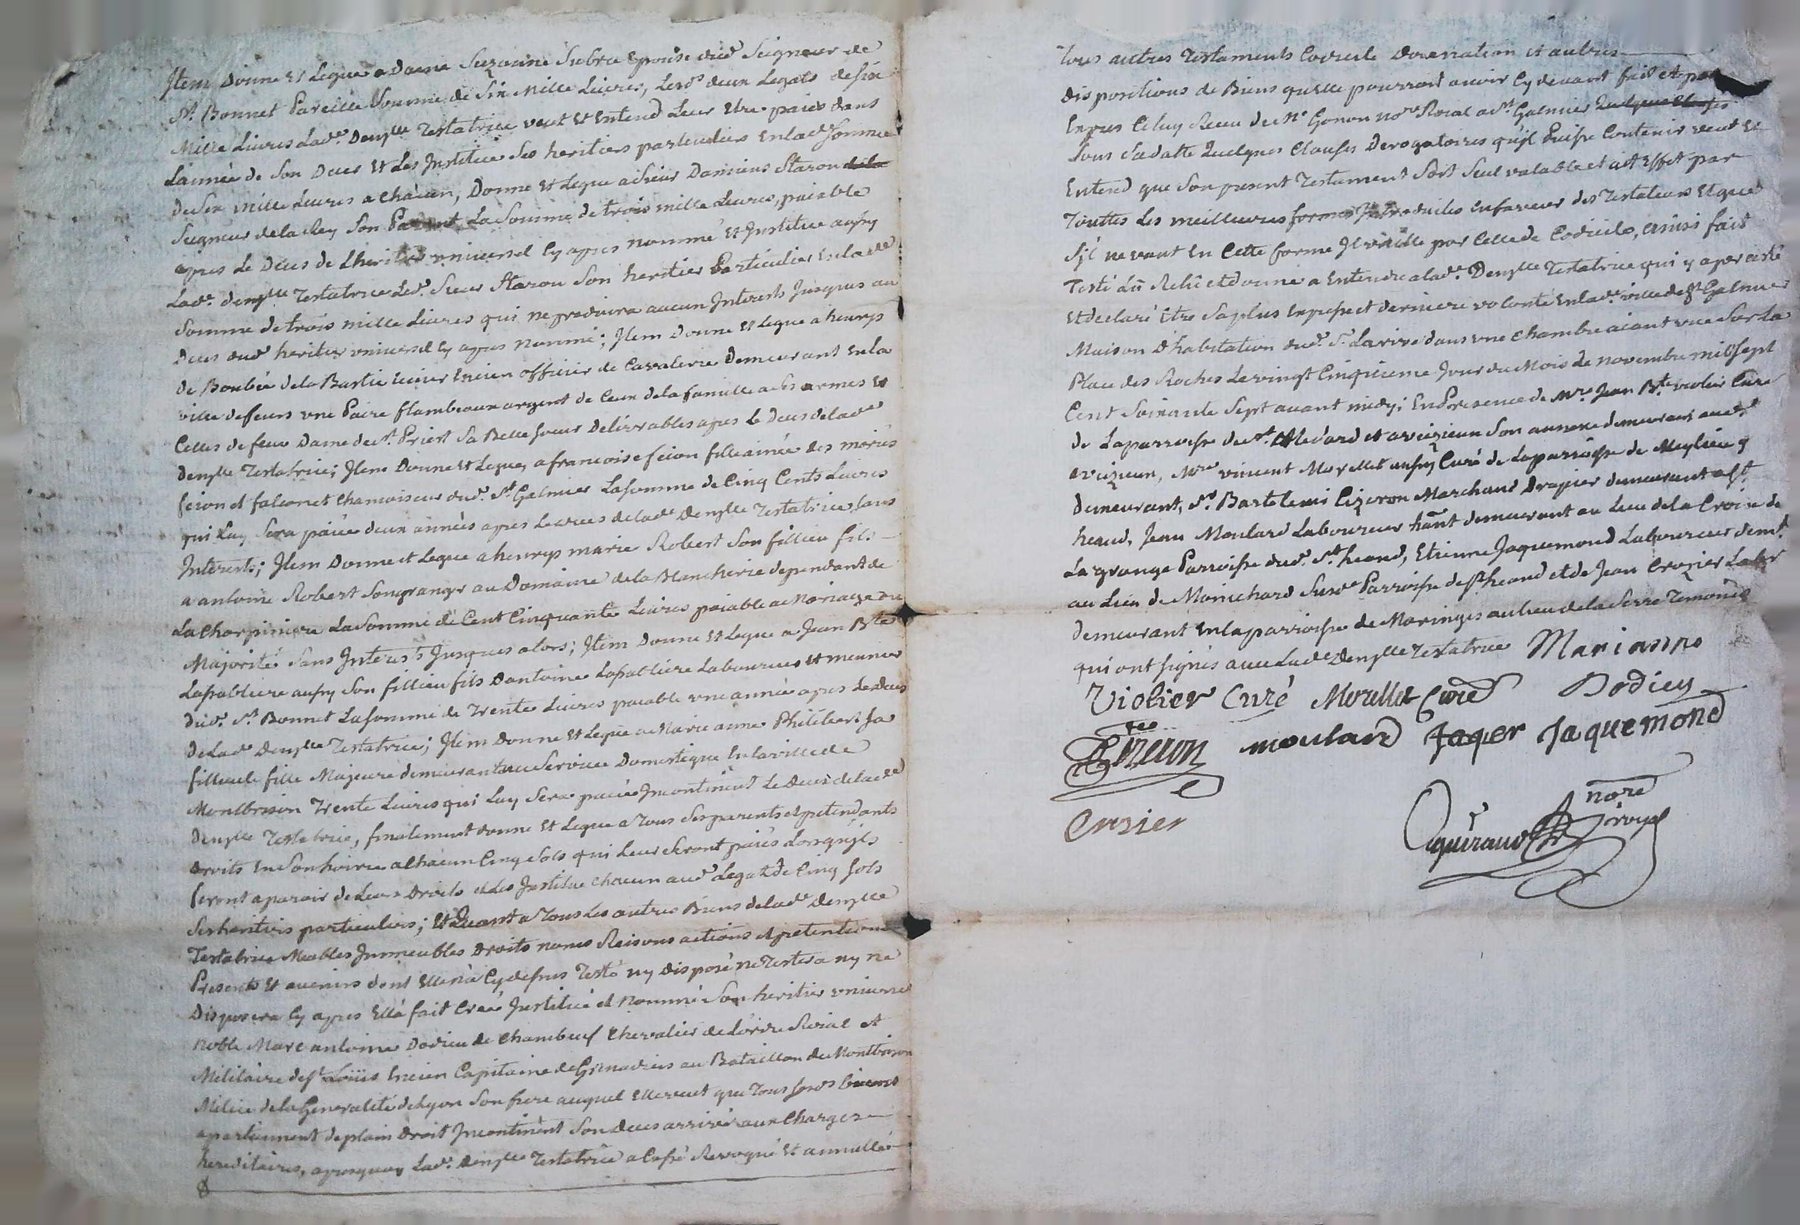 Item Donne et Legue a Dame Suzanne Subra Epouse dud. Seigneur de
St. Bonnet Pareille Somme de Six Mille Livres, Lesds. deux Legats de six
Mille Livres Lade. Demlle Testatrice veut et Entend Leur Etre paiés dans
L'année de Son Deces Et Les Institue Ses heritiers particuliers En lade. Somme
de Six mille Livres a chacun, Donne et Legue a Sieur Damiens Staron
Seigneur de la Rey Son Parent La Somme de trois mille Livres, paiable
apres Le Deces de L'heritier universel Cy apres nommé et Institue aussy
Lade. demlle Testatrice Led. Sieur Staron Son heritier Particulier En lade.
Somme de trois mille Livres qui ne produira aucun Interests Jusques au
Deces dud. heritier universel Cy apres nommé; Item Donne et Legue a henrys
de Boubée de la Bastie Ecuier Encien officier de Cavalerie Demeurant En la
ville de feurs une Paire flambeaux argent de Ceux de la famille a Ses armes et
Celles de feue Dame de St. Priest Sa Belle Soeur Delivrables apres Le Deces de lade.
Demlle Testatrice; Item Donne et Legue a francoise feion fille ainée des mariés
feion et falconet Chamoiseur dud. St. Galmier La Somme de Cinq Cents Livres
qui Luy Sera paiée deux années apres Le deces de lade. Demlle Testatrice Sans
Interests; Item Donne et Legue a henrys marie Robert Son fillieu fils
a antoine Robert Son granger au Domaine de la Blancherie dependant de
La Charpiniere La Somme de Cent Cinquante Livres paiable a Mariage ou
Majorité Sans Interests Jusques alors; Item Donne et Legue a Jean Bte
Lapabliere aussy Son fillieu fils D'antoine Lapabliere Laboureur et meunier
Dud. St. Bonnet La Somme de Trente Livres paiable une année apres Le deces
De Lade. Demlle Testatrice; Item Donne et Legue a Marie anne Philibert Sa
filleule fille Majeure demeurant au Service Domestique En la ville de
Montbrison Trente Livres qui Luy Sera paiée Incontinent Le Deces de lade.
Demlle Testatrice, finalement donne et Legue a Tous Ses parents et pretendants
Droits En Son hoirie a Chacun Cinq Sols qui Leur Seront paiés Lorsqu'ils
feront aparoir de Leurs Droits et Les Institue Chacun aud. Legat de Cinq Sols
Ses heritiers particuliers; Et Quant a Tous Les autres Biens de lade. Demlle
Testatrice Meubles Immeubles Droits noms Raisons actions et pretentions
Presents et avenirs dont Elle n'a Cy dessus Testé ny Disposé ne Testera ny ne
Disposera Cy apres Ell'a fait Créé Institué et nommé Son heritier universel
noble Marc antoine Dodieu de Chambeuf Chevalier de L'ordre Roial et
Militaire de St. Loüis Encien Capitaine de Grenadiers au Bataillon de Montbrison
Milice de la Generalité de Lyon Son frere auquel Elle veut que Tous Sesds. biens
apartiennent de plain Droit Incontinent Son Deces arrivé aux Charges
hereditaires, a Lade. Demlle Testatrice a Cassé Revoqué Et annullé
Tous autres Testaments Codicile Donnation et autres
dispositions de Biens qu'elle pourroit avoir Cy devant fait et
Expres Celuy Receu de Me. Gonon nore. Roial a St. Galmier
Sous Sa datte Quelques Clauses Derogatoires qu'il Puisse Contenir veut et
Entend que Son present Testament Soit Seul valable et ait Effet par
Touttes Les meilleures formes Introduites En faveur des Testateurs Et que
S'jl ne vaut En Cette forme Il vaille par Celle de Codicile, ainsi fait
Testé Lû Relû et donné a Entendre a lade. Demlle Testatrice qui y a persisté
Et declaré Etre Sa plus Expresse et derniere volonté En lade. ville de St. Galmier
Maison D'habitation dud. Sr. Larive dans une Chambre aiant vue Sur La
Place des Roches Le vingt Cinquieme Jour du Mois de novembre mil Sept
Cent Soixante Sept avant midy; En Presence de Mre. Jean Bte. violier Curé
de La parroisse de St. Medard et aveizieux Son annexe demeurant aud.
aveizieux, Mre. vincent Morellet aussy Curé de La parroisse de Meylieu y
demeurant, Sr. Bartelemi Cizeron Marchand Drapier demeurant a St.
heand, Jean Moulard Laboureur hant. demeurant au Lieu de la Croix de
La grange Parroisse dud. St. heand, Etienne Jaquemond Laboureur demt.
au Lieu de Monichard Susde. Parroisse de St. heand et de Jean Crozier Labr.
demeurant En la parroisse de Maringes au Lieu de la Serre Temoins
qui ont Signés avec Lade. Demlle Testatrice Marianne
Violier Curé Morellet Curé Dodieu
Cizeron moulard Jaquemond
Crozier
nore
Guiraud royal